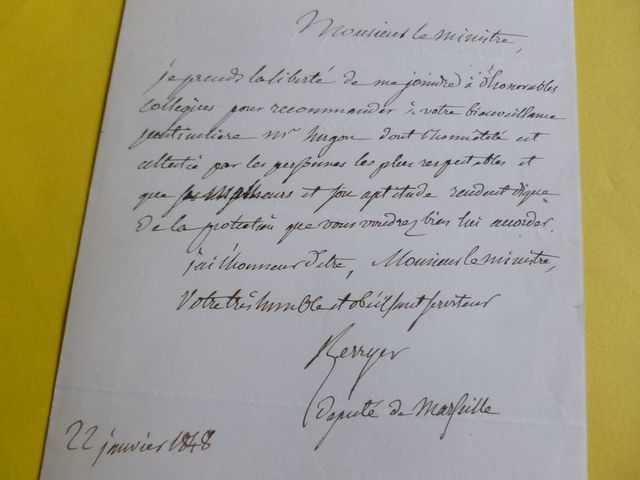 Monsieur le ministre,
je prends la liberté de me joindre à d'honorables
collègues pour recommander à votre bienveillance
particulière Mr hugon dont l'honnêteté est
attestée par les personnes les plus respectables et
que ses malheurs et son aptitude rendent digne
de la protection que vous voudrez bien lui accorder.
j'ai l'honneur d'etre, Monsieur le ministre,
Votre très humble et obéissant serviteur
Berryer
Député de Marseille
22 janvier 1848